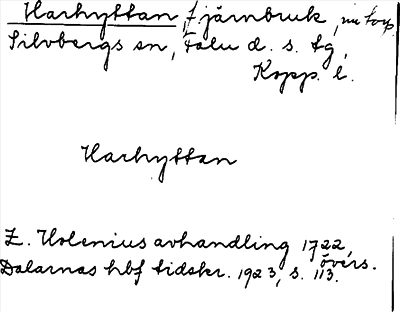 Harhyttan, f. järnbruk, nu torp
Silvbergs sn, Falu d. s. tg,
Kopp. l.
Harhyttan
Z. Holenius avhandling 1722, övers.
Dalarnas hbf tidskr. 1923, s. 113.